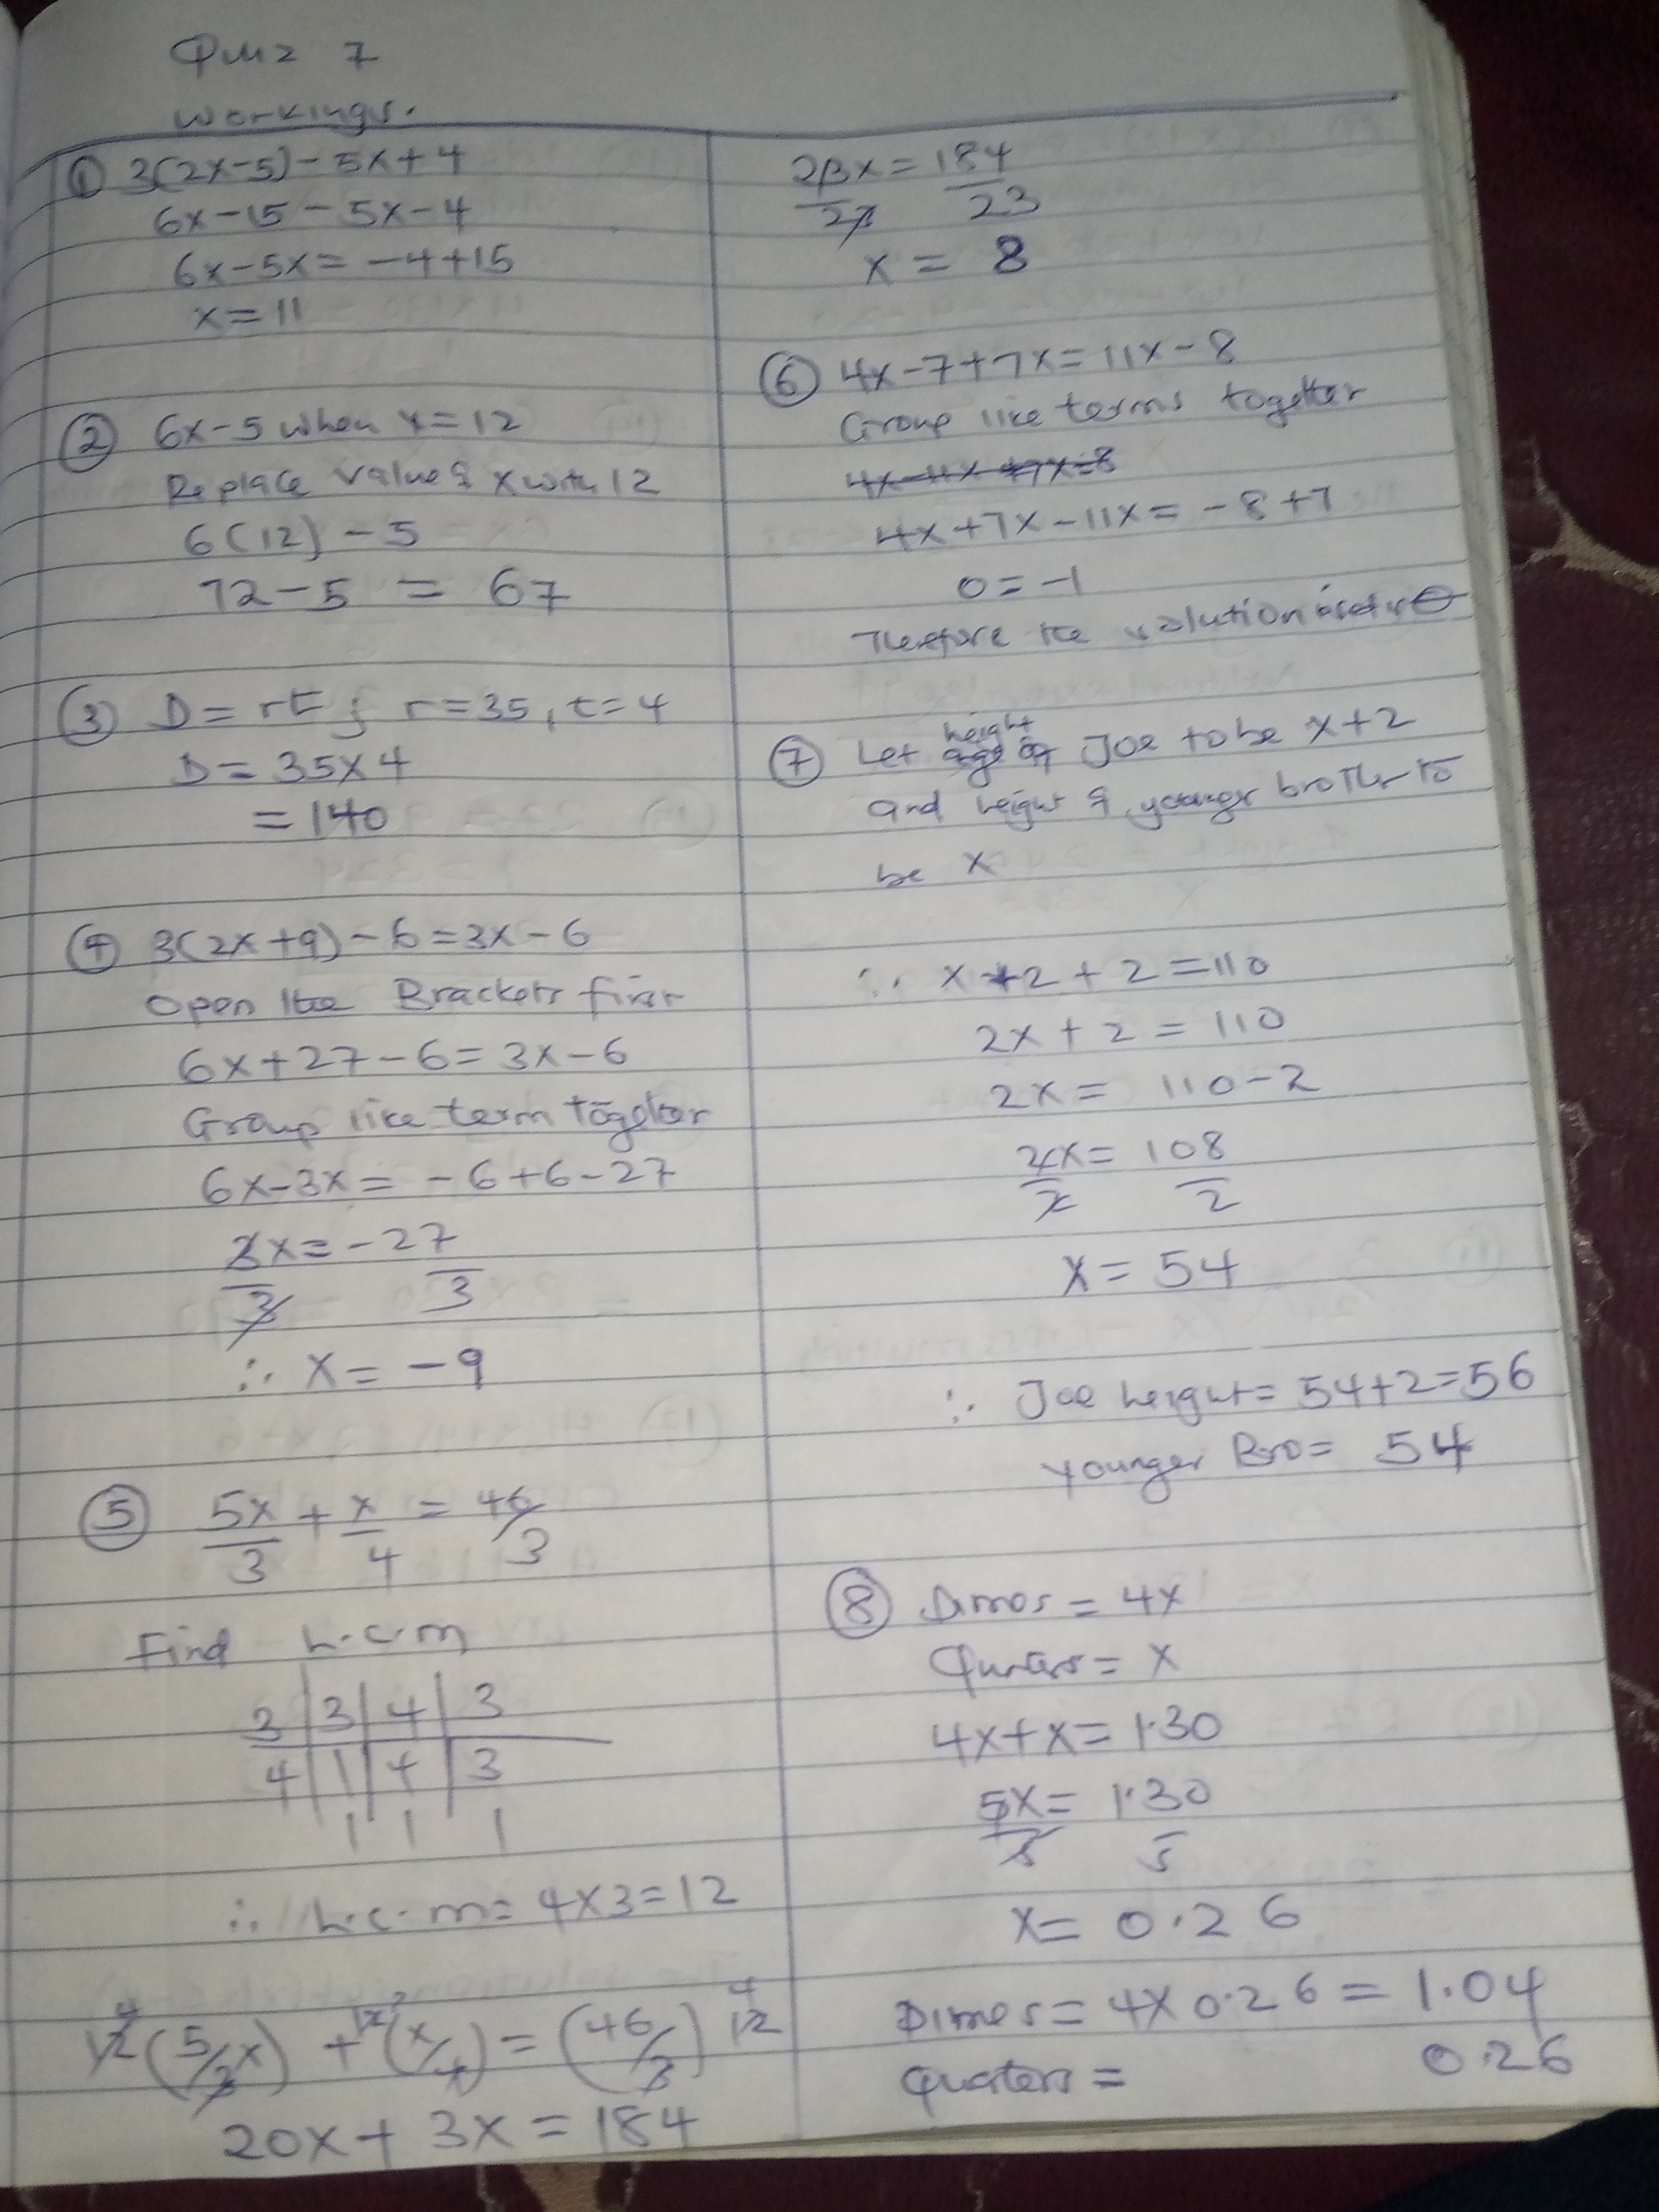 Quiz 7
Workings.
① 3(2x-5) - 5x+4
6x-15 - 5x-4
6x-5x = -4+15
x = 11
② 6x-5 when x=12
Replace value of x with 12
6(12) - 5
72-5 = 67
③ D = rt ; r=35, t=4
D = 35x4
= 140
④ 3(2x+9) - 6 = 3x - 6
Open the Brackets first
6x+27-6 = 3x-6
Group like term together
6x-3x = -6+6-27
3x = -27
3 3
∴ x = -9
⑤ 5x/3 + x/4 = 46/3
Find L.C.M
3 | 3 | 4 | 3
4 | 1 | 4 | 3
1 1 1
∴ L.C.M = 4x3 = 12
4 12 4
12 (5/3x) + (x/4) = (46/3) 12
20x + 3x = 184
23x = 184
23 23
x = 8
⑥ 4x-7+7x = 11x-8
Group like terms together
4x+7x-11x = -8+7
0 = -1
Therefore the solution is
⑦ Let height of Joe to be x+2
and height of younger brother to
be x
∴ x+2 + 2 = 110
2x + 2 = 110
2x = 110-2
2x = 108
2 2
x = 54
∴ Joe height = 54+2 = 56
younger Bro = 54
⑧ Dimes = 4x
= x
4x+x = 1.30
5x = 1.30
5 5
x = 0.26
Dimes = 4x0.26 = 1.04
Quaters = 0.26